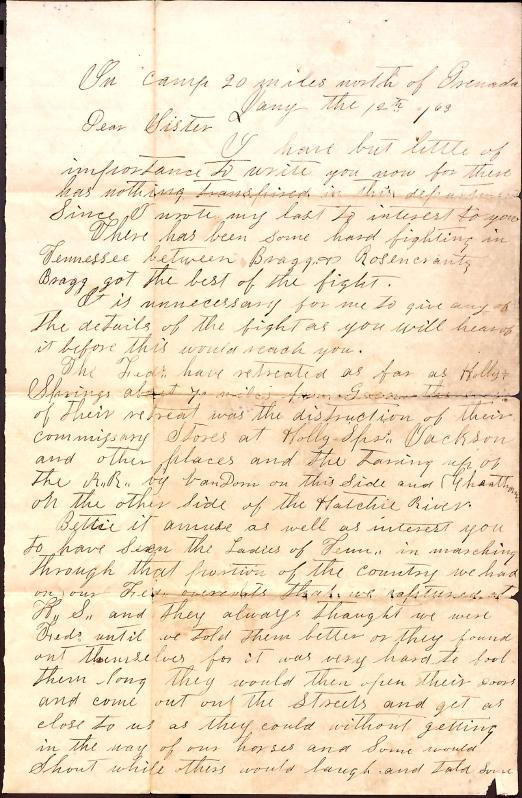 In camp 20 miles north of Grenada
Jany the 12th /63
Dear Sister
I have but little of
importance to write you now for there
has nothing transpired in this department
Since I wrote my last to interest to you
There has been some hard fighting in
Tennessee between Bragg & Rosencrantz
Bragg got the best of the fight.
It is unnecessary for me to give any of
the details of the fight as you will hear of
it before this would reach you.
The Feds. have retreated as far as Holly
Springs about miles from the
of their retreat was the distruction of their
commissary Stores at Holly Spr., Jackson
and other places and the taring up of
the R.R., by VanDorn on this side and
on the other side of the Hatchie River.
Bettie it amuse as well as interest you
to have seen the Ladies of Tenn., in marching
through that portion of the country we had
on our Fed. overcoats that we captured at
H., S., and they always thaught we were
Feds until we told them better or they found
out themselves for it was very hard to fool
them long they would then open their doors
and come out on the Streets and get as
close to us as they could without getting
in the way of our horses and Some would
Shout while others would laugh and told Some